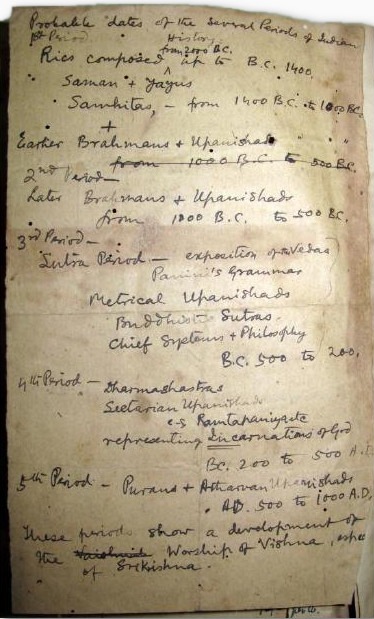 Probable dates of the Several Periods of Indian
History.
1st Period.
from 2000 B.C.
Rics composed up to B.C. 1400.
Saman + Yagus
Samhitas, - from 1400 B.C. to 1000 B.C.
+
Earlier Brahmans + Upanishads " "
from 1000 B.C. to 500 B.C.
2nd Period -
Later Brahmans + Upanishads
from 1000 B.C. to 500 B.C.
3rd Period -
Sutra Period - exposition of the Vedas
Panini's Grammar
Metrical Upanishads
Buddhistic Sutras.
Chief Systems + Philosophy
B.C. 500 to 200.
4th Period - Dharmashastras
Sectarian Upanishads
e.g.
representing Incarnations of God
B.C. 200 to 500 A.D.
5th Period - Purans + Atharvan Upanishads
A.D. 500 to 1000 A.D.
These periods show a development of
the Worship of Vishnu, espec
of Srikrishna.